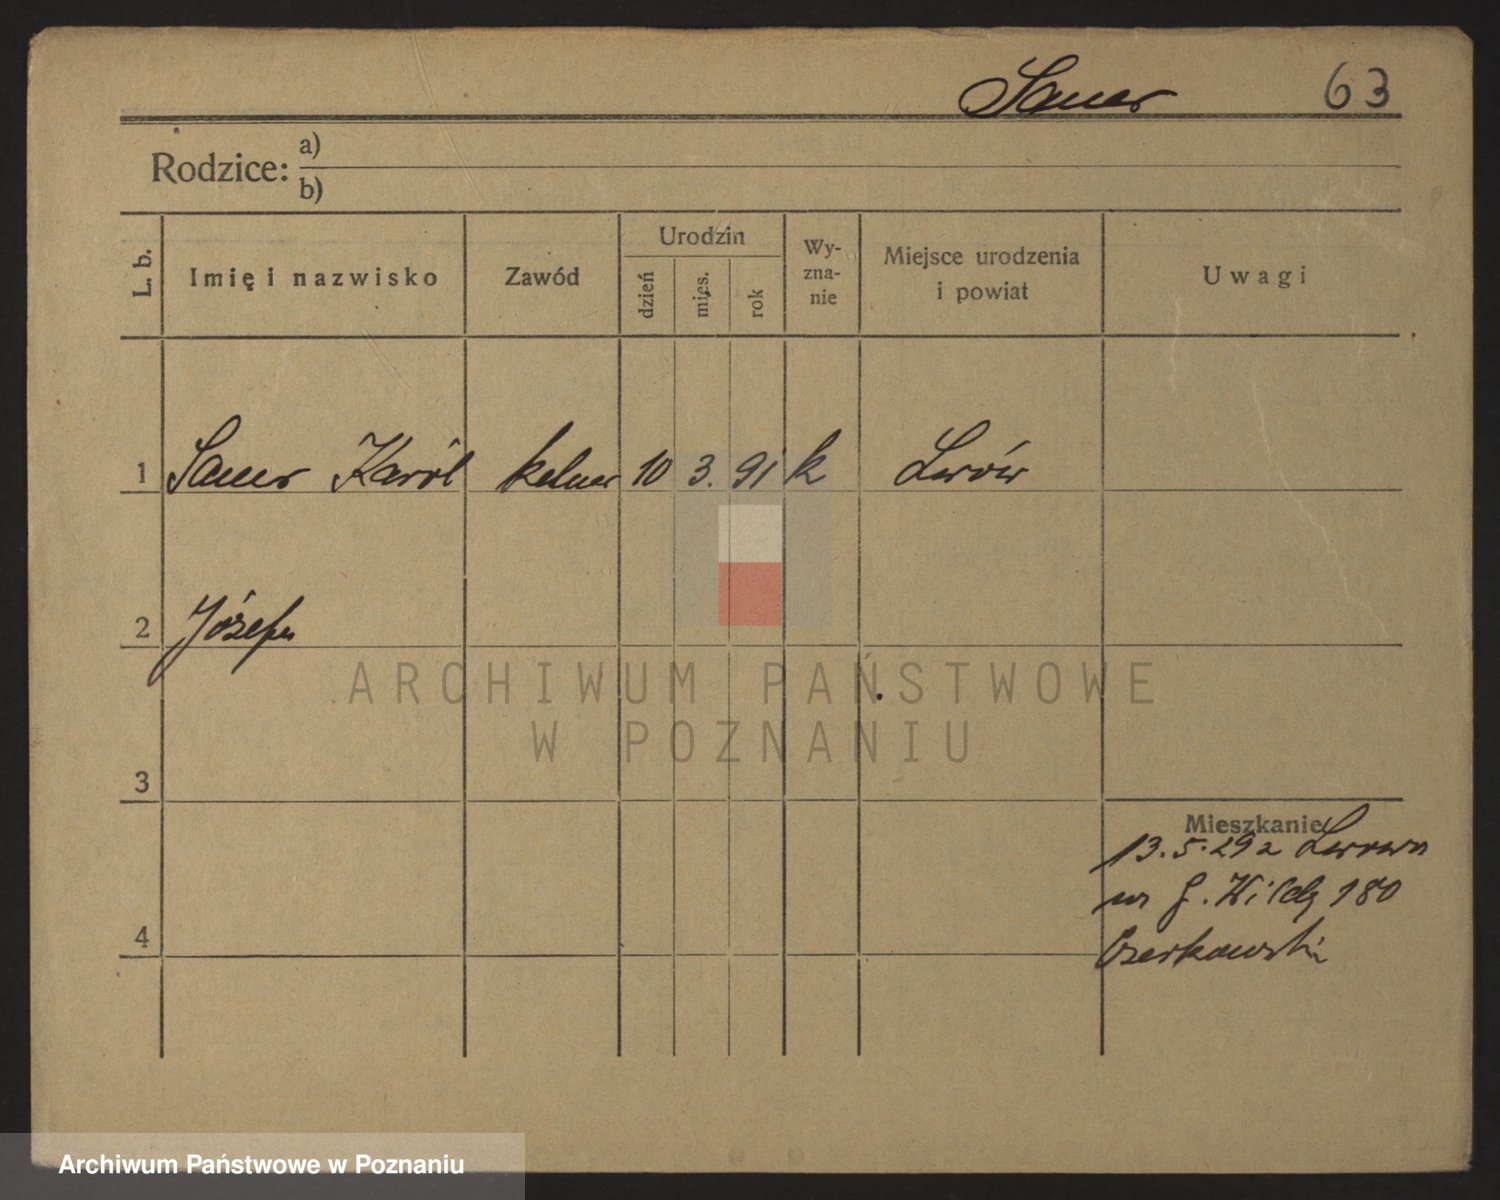 Sauer 63
Rodzice: a)
b)
L. b. Imię i nazwisko Zawód Urodzin dzień mies. rok Wy-zna-nie Miejsce urodzenia i powiat Uwagi
1 Sauer Karol kelner 10 3. 91 k Lwów
2 Józef
ARCHIWUM PAŃSTWOWE
W POZNANIU
3
Mieszkanie
13.5.29 z Lwowa
G. Wildy 180
4
Archiwum Państwowe w Poznaniu